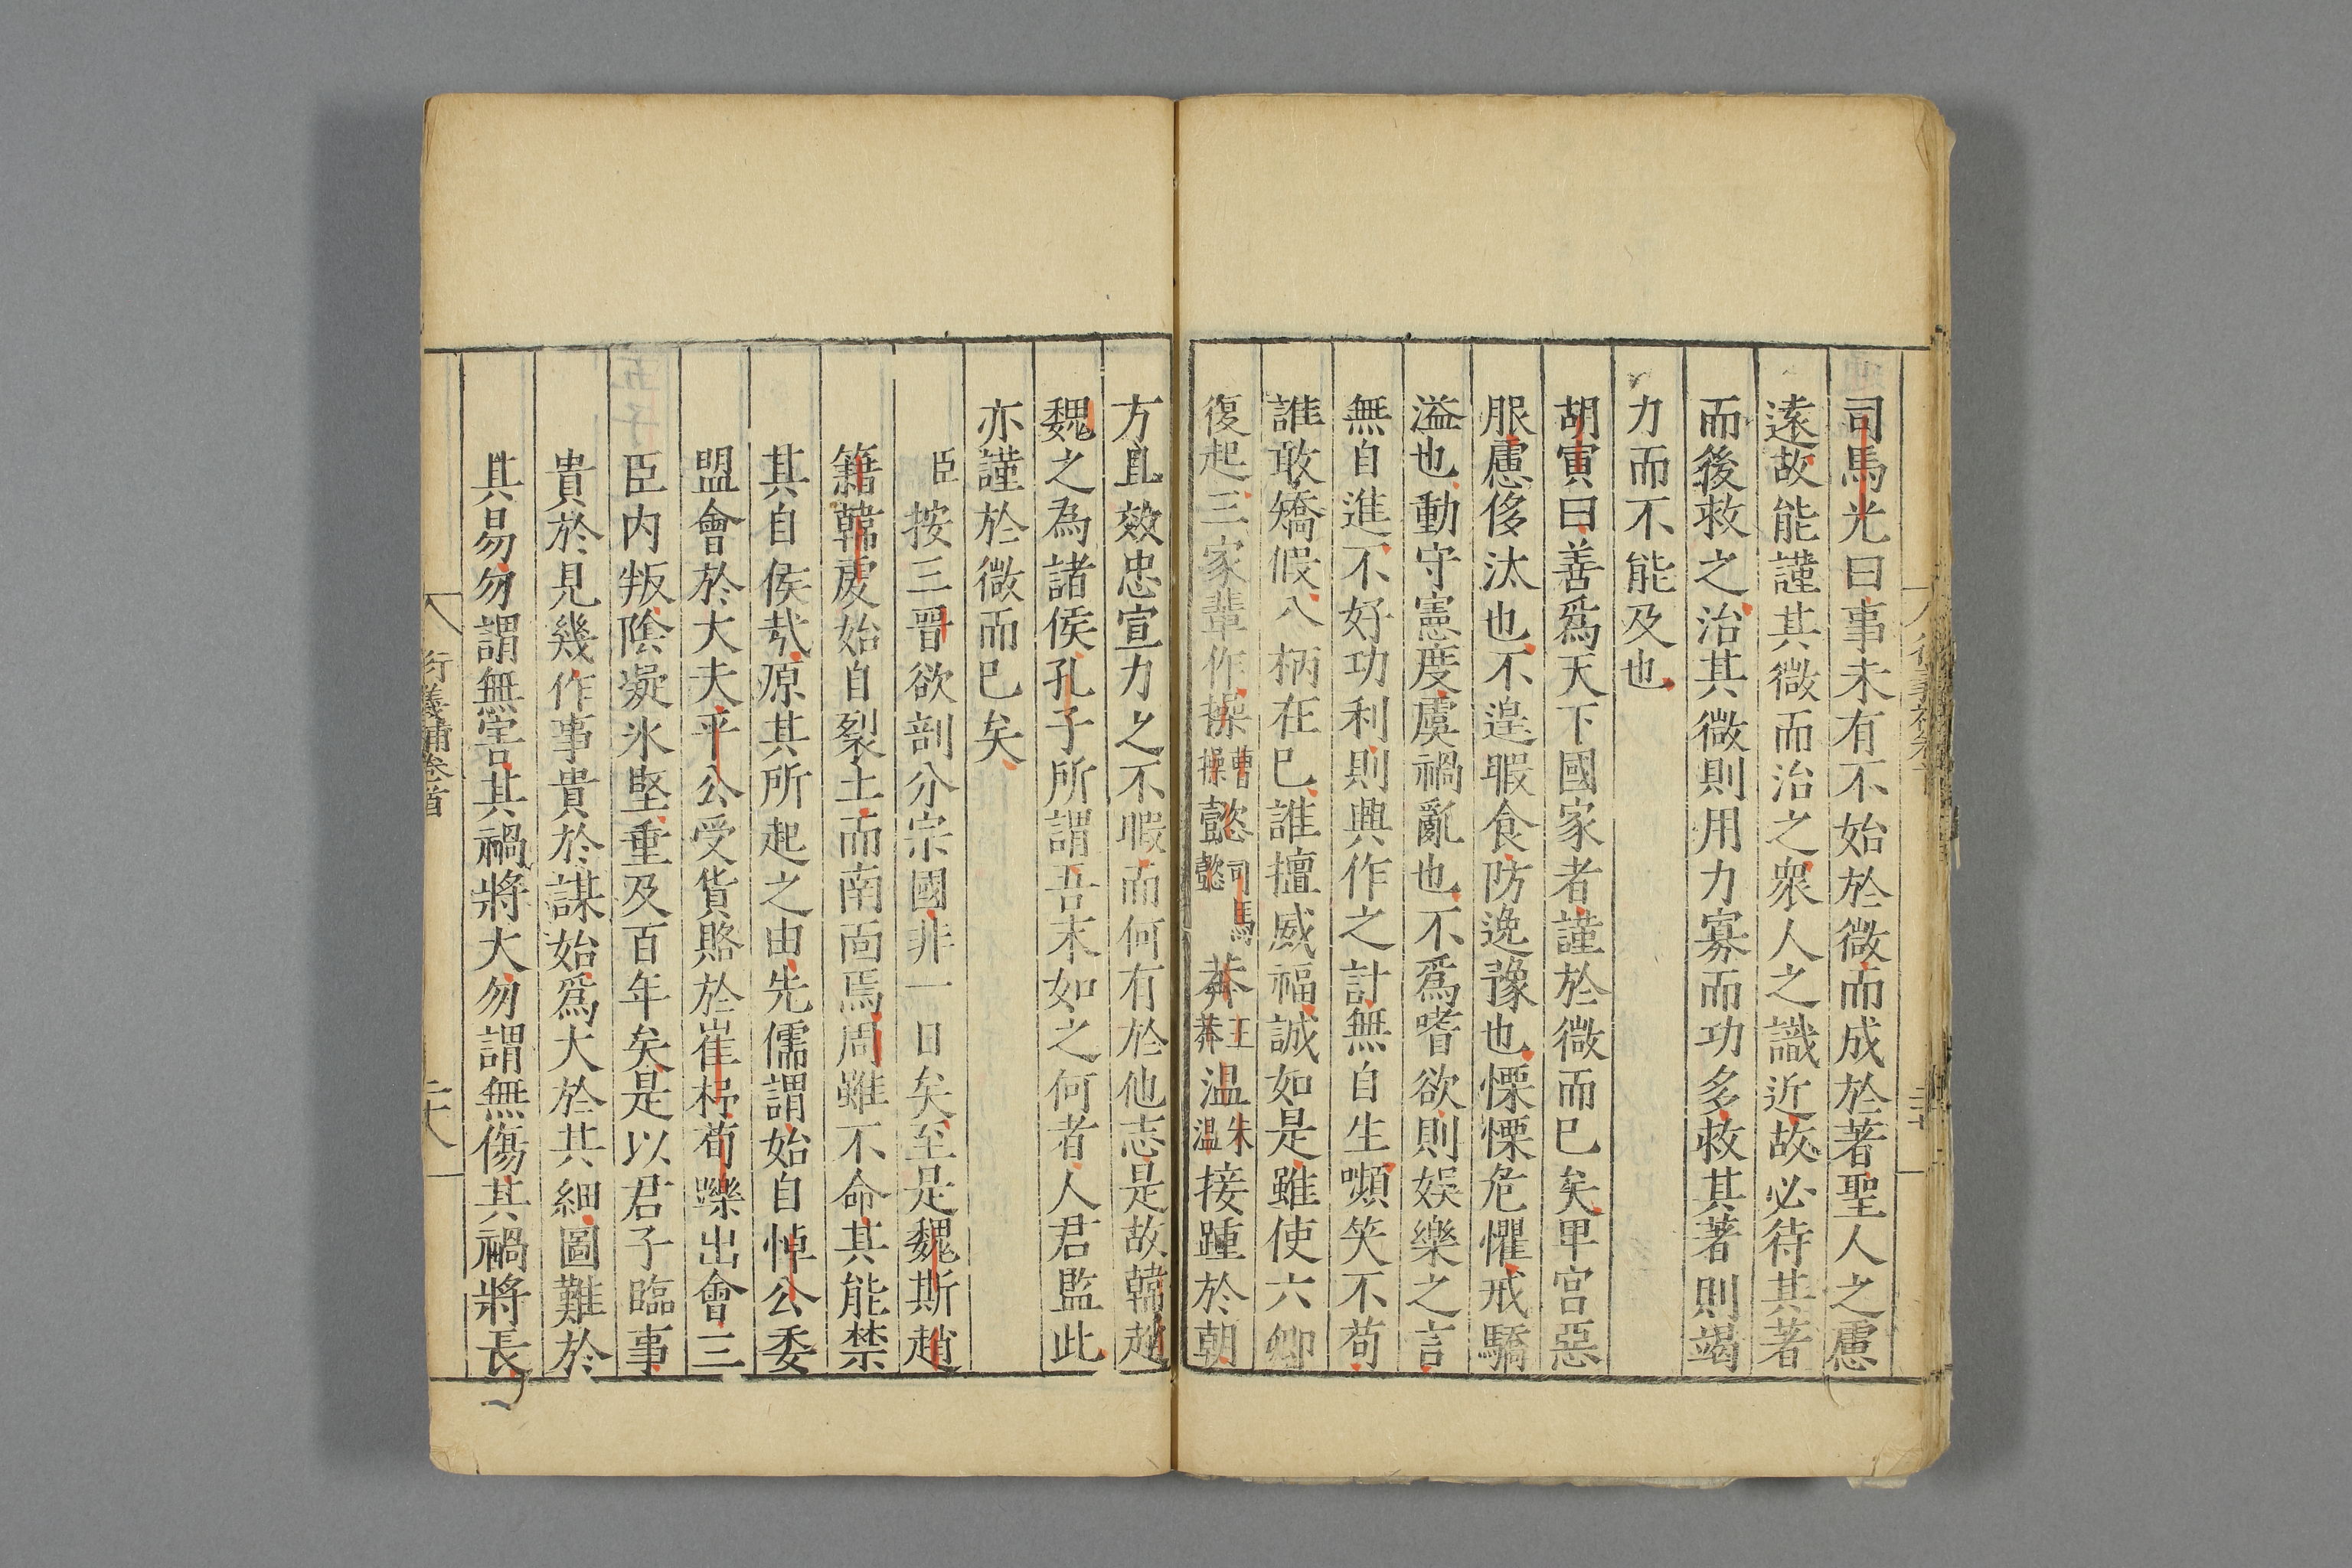 司馬光曰事未有不始於微而成於著聖人之慮
遠故能謹其微而治之衆人之識近故必待其著
而後救之治其微則用力寡而功多救其著則竭
力而不能及也
胡寅曰善爲天下國家者謹於微而已矣卑宮惡
服慮侈汰也不遑暇食防逸豫也慄慄危懼戒驕
溢也動守憲度虞禍亂也不爲嗜欲則娛樂之言
無自進不好功利則興作之計無自生嚬笑不苟
誰敢矯假八柄在已誰擅威福誠如是雖使六卿
復起三家輩作操曹操懿司馬懿莽王莽温朱温接踵於朝
方且效忠宣力之不暇而何有於他志是故韓趙
魏之為諸侯孔子所謂吾末如之何者人君監此
亦謹於微而已矣
臣按三晉欲剖分宗國非一日矣至是魏斯趙
籍韓虔始自裂土而南面焉周雖不命其能禁
其自侯㢤原其所起之由先儒謂始自悼公委
盟會於大夫平公受貨賂於崔杼荀躒出會三
臣内叛陰凝氷堅重及百年矣是以君子臨事
貴於見幾作事貴於謀始爲大於其細圖難於
其易勿謂無害其禍將大勿謂無傷其禍將長
衍義補卷首